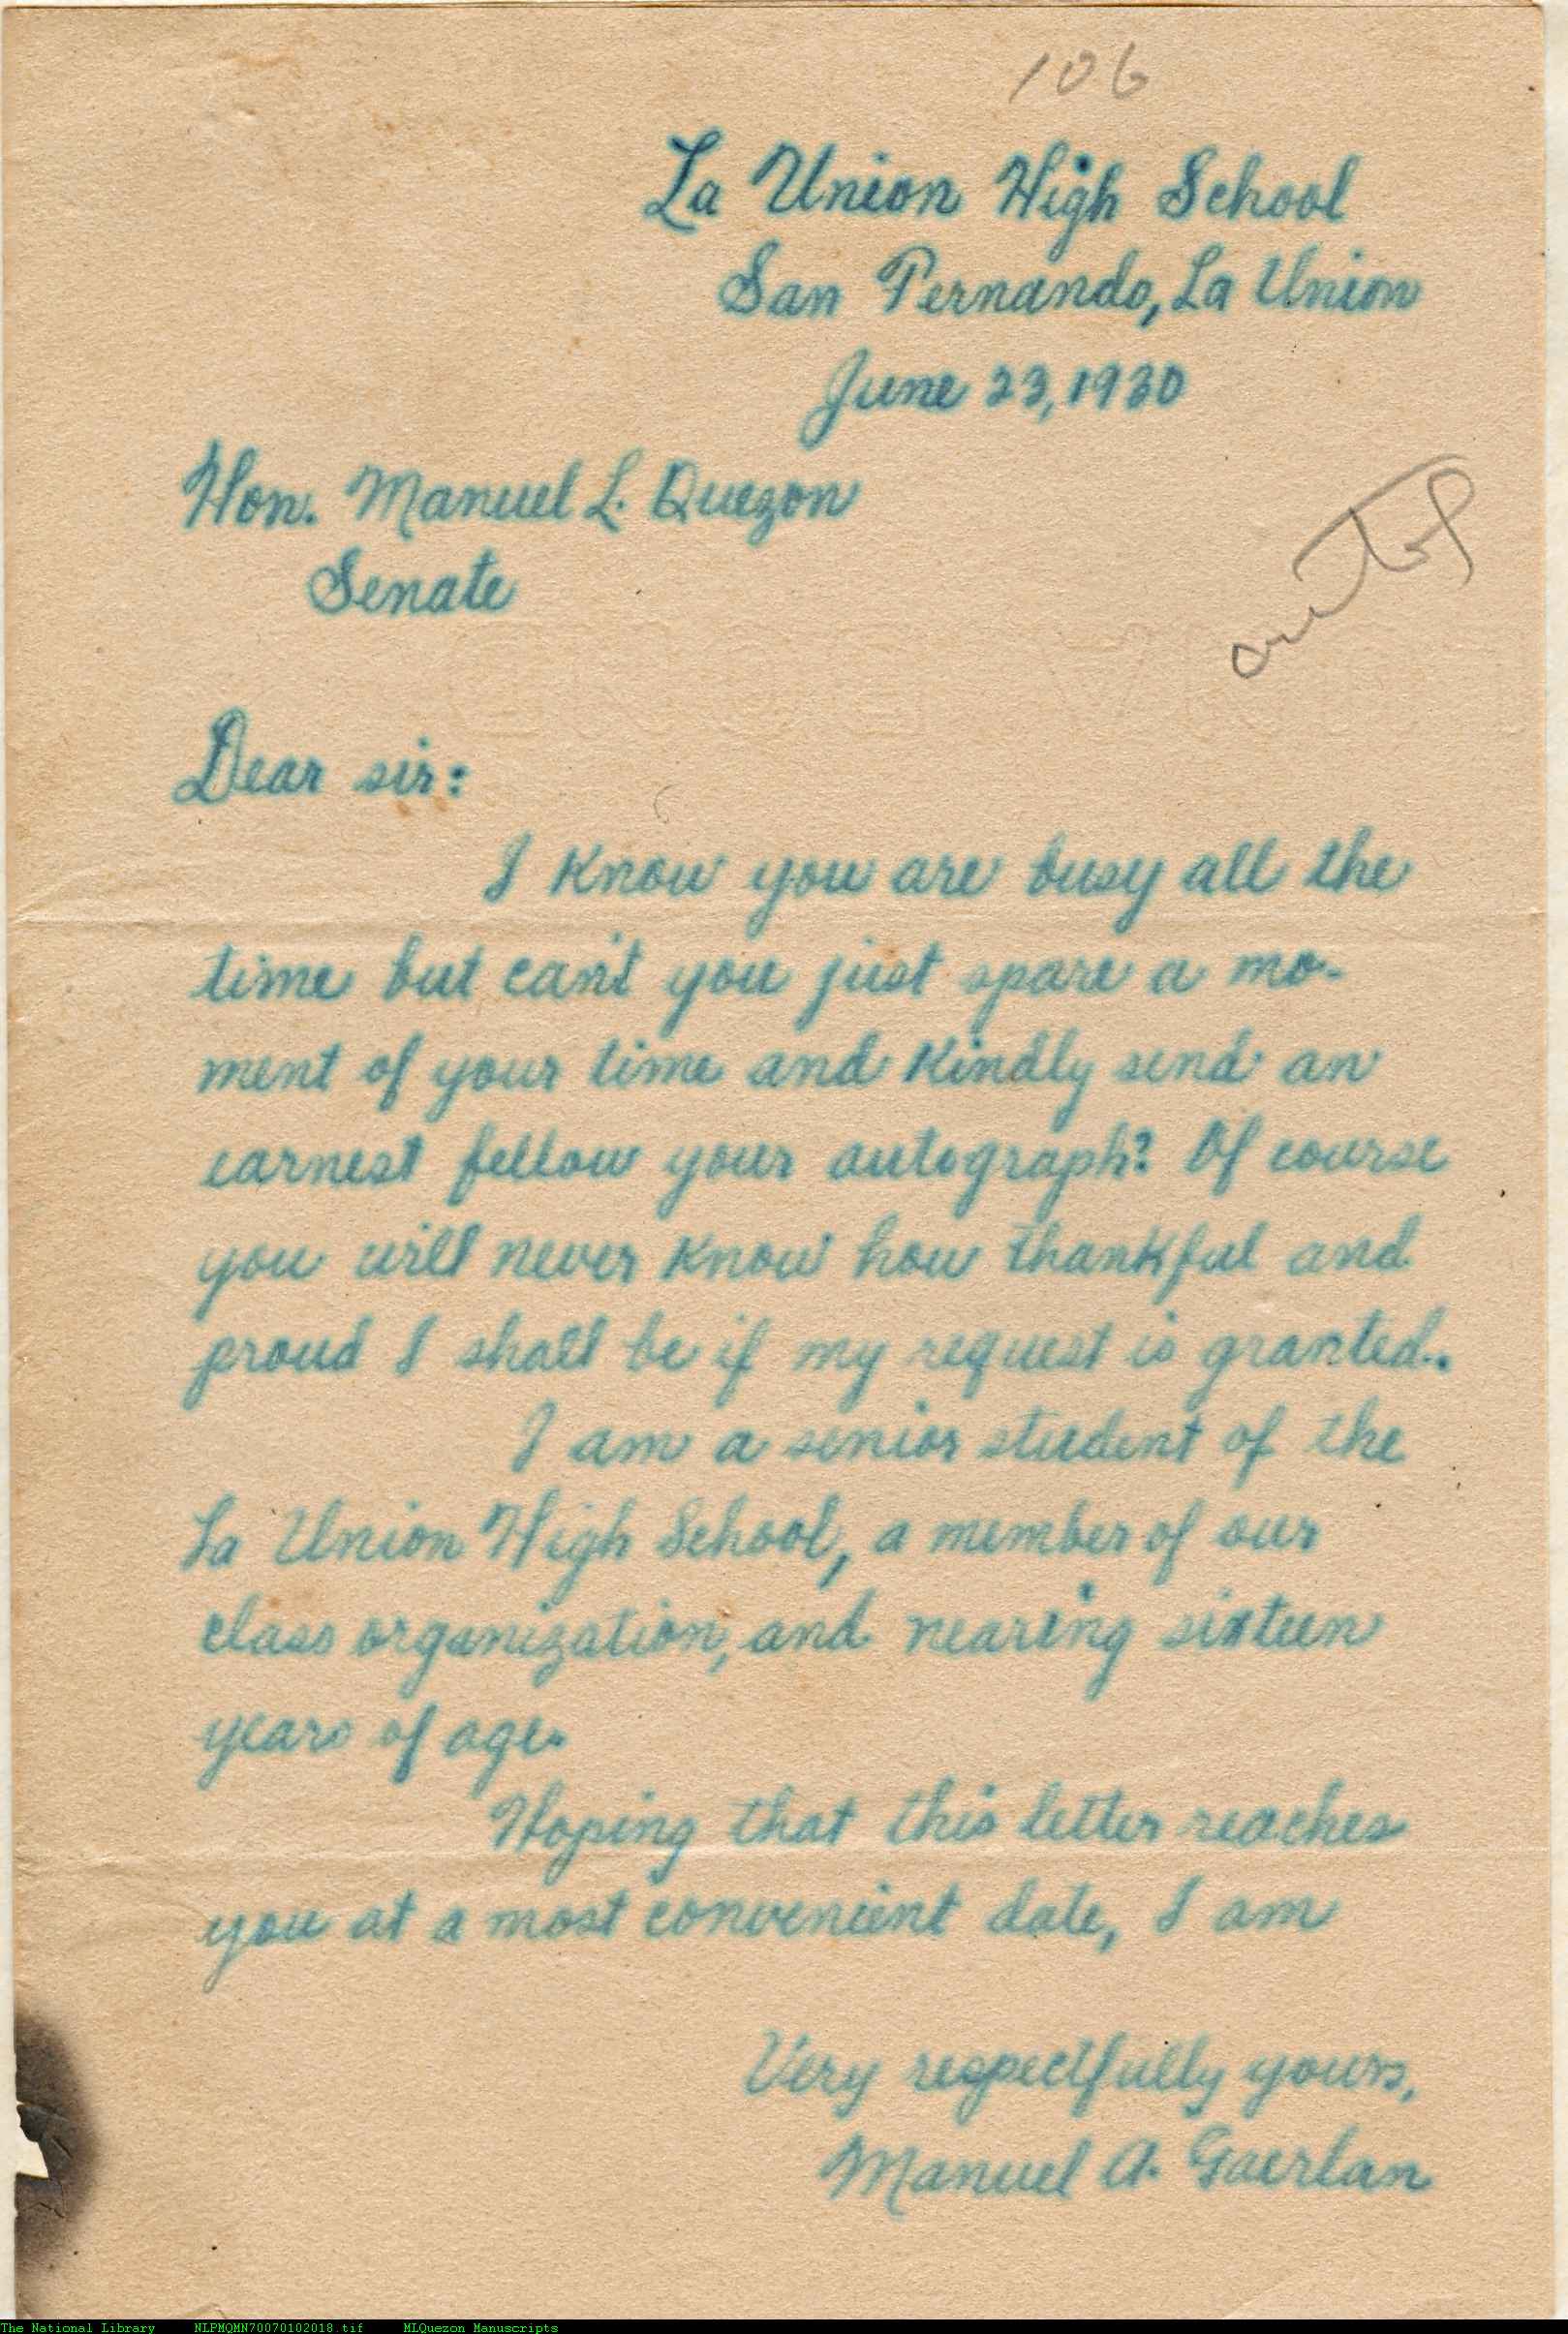 106
La Union High School
San Fernando, La Union
June 23, 1930
Hon. Manuel L. Quezon
Senate
Dear sir:
I know you are busy all the
time but can't you just spare a mo-
ment of your time and kindly send an
earnest fellow your autograph? Of course
you will never know how thankful and
proud I shall be if my request is granted.
I am a senior student of the
La Union High School, a member of our
class organization, and nearing sixteen
years of age.
Hoping that this letter reaches
you at a most convenient date, I am
Very respectfully yours,
Manuel A. Gaerlan
The National Library NLPMQMN70070102018.tif MLQuezon Manuscripts